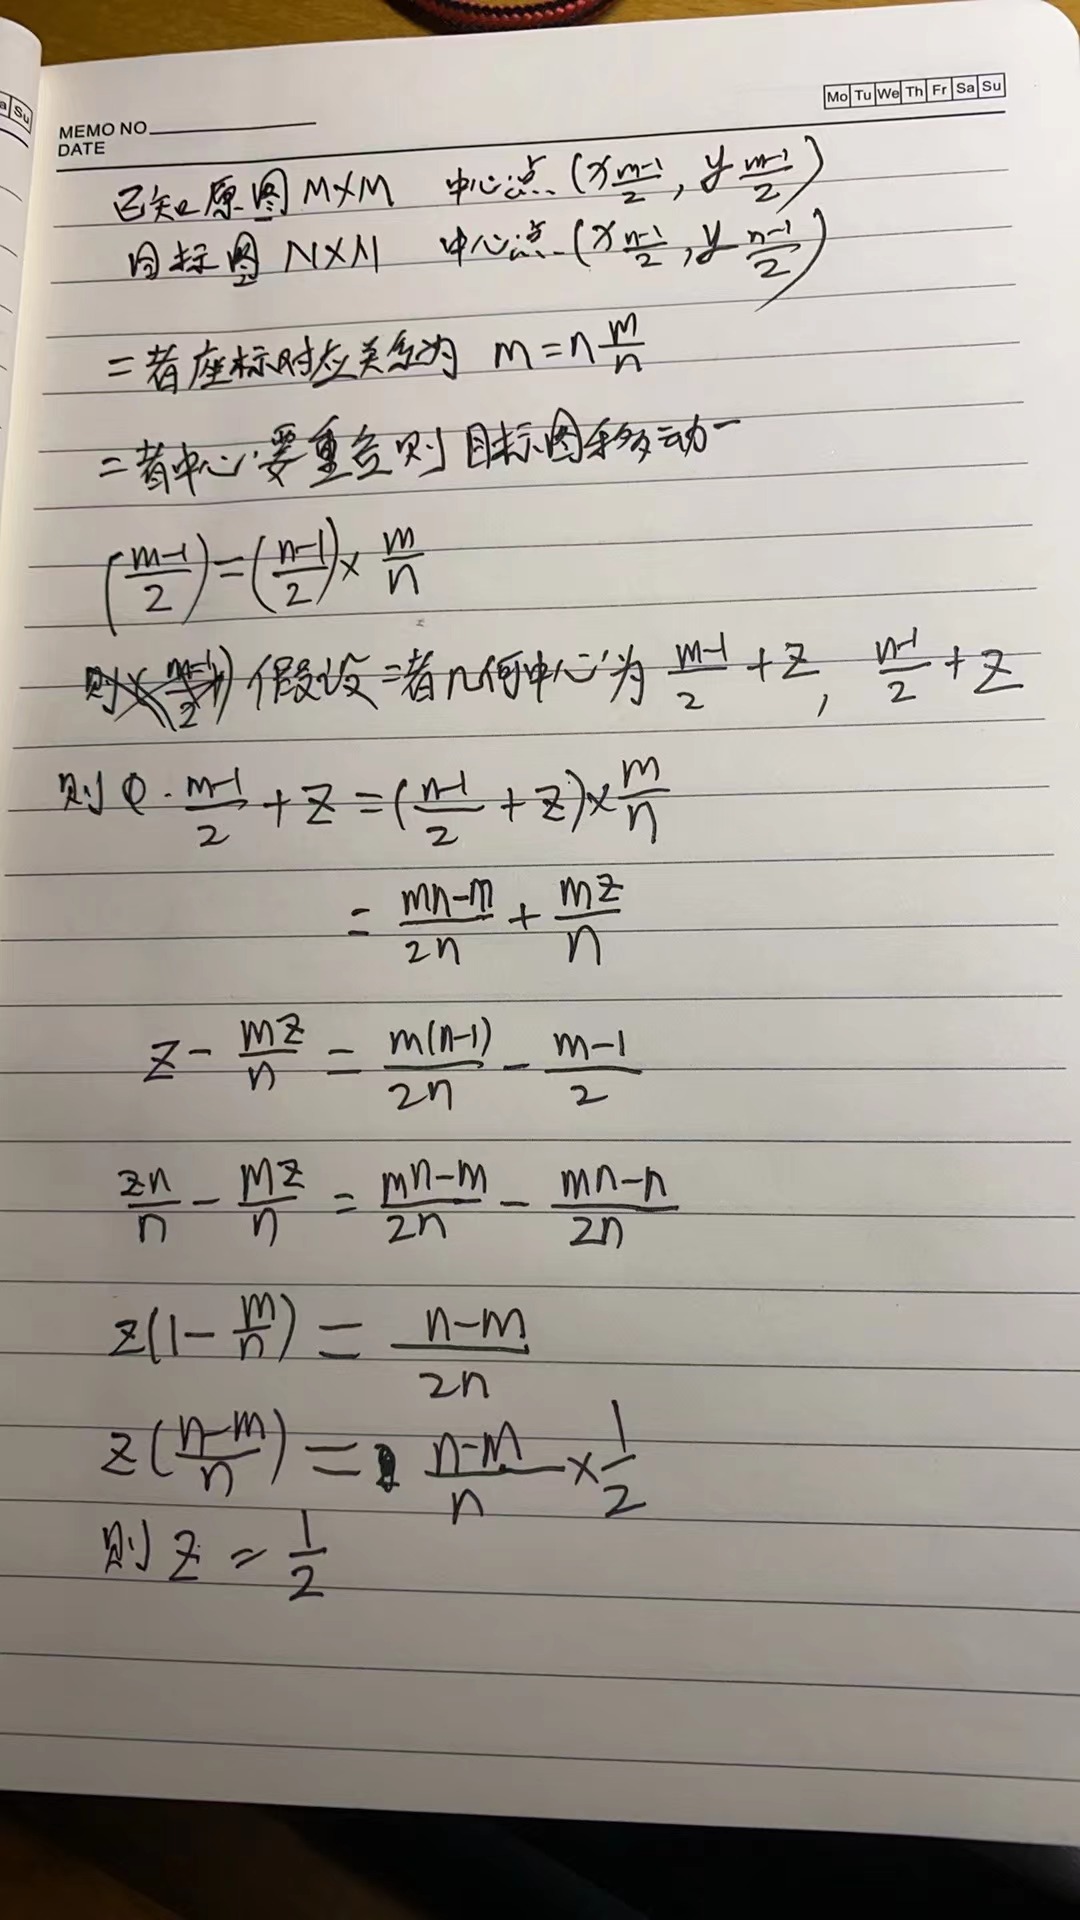 Mo Tu We Th Fr Sa Su
MEMO NO
DATE
已知原图 M×M 中心点 (x (m-1)/2, y (m-1)/2)
目标图 N×N 中心点 (x (n-1)/2, y (n-1)/2)
二者座标对应关系为 m = n m/n
二者中心要重合则目标图移动一
((m-1)/2) = ((n-1)/2) × m/n
则 假设二者几何中心为 (m-1)/2 + z, (n-1)/2 + z
则 (m-1)/2 + z = ((n-1)/2 + z) × m/n
= (mn-m)/2n + mz/n
z - mz/n = m(n-1)/2n - (m-1)/2
zn/n - mz/n = (mn-m)/2n - (mn-n)/2n
z(1 - m/n) = (n-m)/2n
z((n-m)/n) = (n-m)/n × 1/2
则 z = 1/2